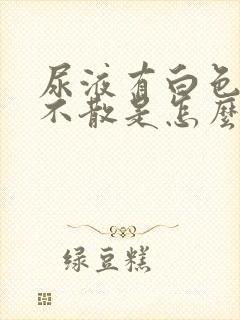 尿液有白色
不散是怎麼
绿豆糕